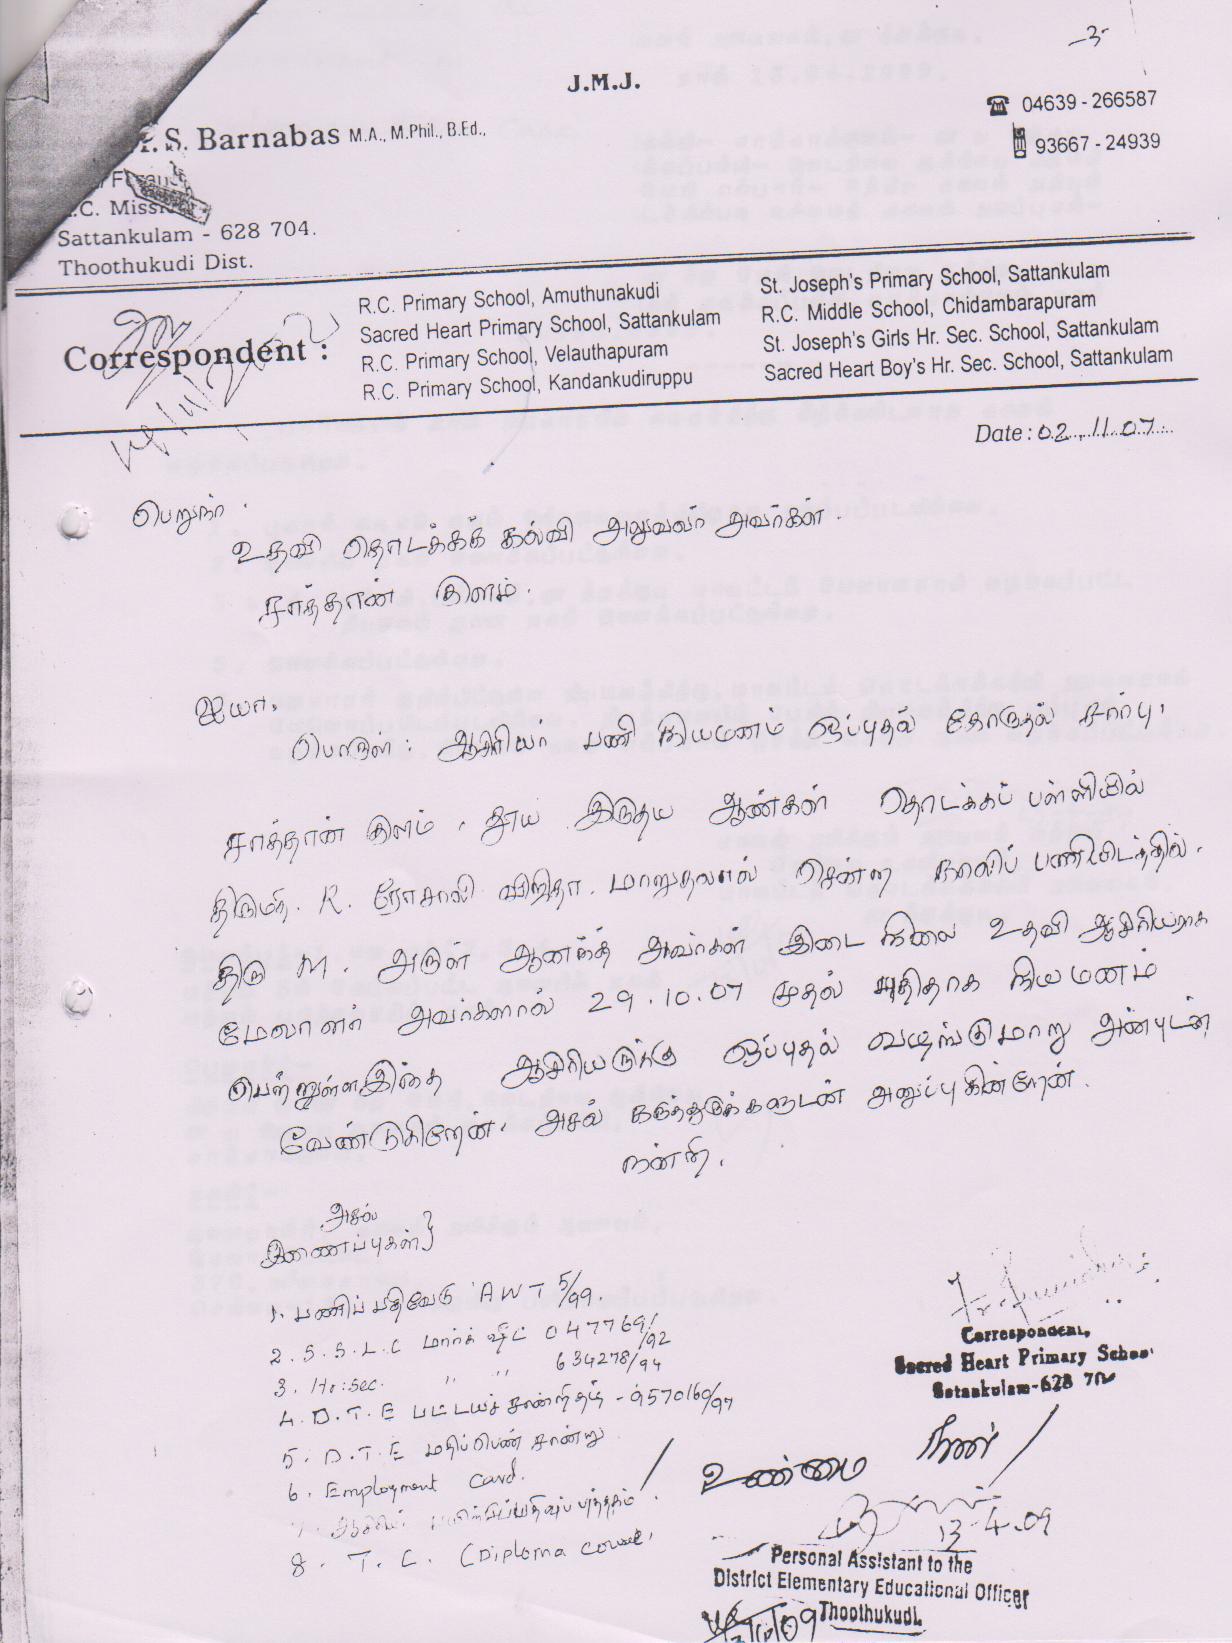 -3-
J.M.J.
S. Barnabas M.A., M.Phil., B.Ed.,
04639 - 266587
93667 - 24939
Sattankulam - 628 704.
Thoothukudi Dist.
Correspondent :
R.C. Primary School, Amuthunakudi
Sacred Heart Primary School, Sattankulam
R.C. Primary School, Velauthapuram
R.C. Primary School, Kandankudiruppu
St. Joseph's Primary School, Sattankulam
R.C. Middle School, Chidambarapuram
St. Joseph's Girls Hr. Sec. School, Sattankulam
Sacred Heart Boy's Hr. Sec. School, Sattankulam
Date : 02.11.07
பெறுநர்.
உதவி தொடக்கக் கல்வி அலுவலர் அவர்கள்.
சாத்தான் குளம்.
ஐயா,
பொருள் : ஆசிரியர் பணி நியமனம் ஒப்புதல் கோருதல் சார்பு.
சாத்தான் குளம், தூய இருதய ஆண்கள் தொடக்கப் பள்ளியில்
திருமதி. R. ரோசாலி விறிதா. மாறுதலால் சென்ற காலிப் பணியிடத்தில்.
திரு M. அருள் ஆனந்த் அவர்கள் இடை நிலை உதவி ஆசிரியராக
மேலாளர் அவர்களால் 29.10.07 முதல் புதிதாக நியமனம்
பெற்றுள்ள இந்த ஆசிரியருக்கு ஒப்புதல் வழங்குமாறு அன்புடன்
வேண்டுகிறேன். அசல் கருத்துருக்களுடன் அனுப்புகின்றேன்.
நன்றி.
அசல்
இணைப்புகள் }
1. பணிப் பதிவேடு AWT 5/99.
2. S.S.L.C மார்க் ஷீட் 047769/92
3. Hr:sec. " " 634278/94
4. D.T.E பட்டயச் சான்றிதழ் - 9570160/97
5. D.T.E மதிப்பெண் சான்று.
6. Employment Card.
7. ஆசிரியர்
8. T.C. (Diploma course)
Correspondent,
Sacred Heart Primary School
Satankulam-628 704
உண்மை நகல்
13-4-09
Personal Assistant to the
District Elementary Educational Officer
Thoothukudi.